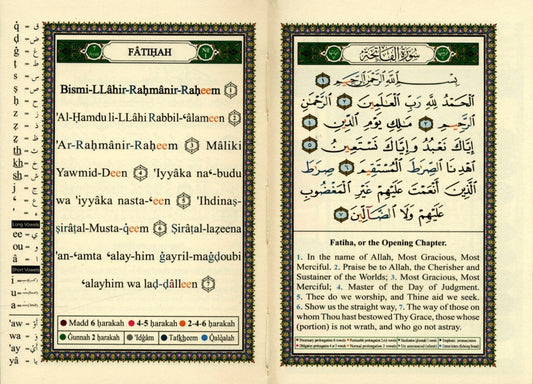 q̇ = ق
d = ض
ġ = غ
ṭ = ط
ṣ = ص
ḥ = ح
th = ث
th = ذ
kh = خ
sh = ش
j = ج
Long Vowels
ee = ي
ou = و
â = ا
Short Vowels
i
u
a
'aw
'ay
wa
yâ
FÂTIḤAH
Bismi-LLâhir-Raḥmânir-Raḥeem ①
'Al-Ḥamdu li-LLâhi Rabbil-ʿâlameen ②
'Ar-Raḥmânir-Raḥeem ③ Mâliki
Yawmid-Deen ④ 'Iyyâka naʿ-budu
wa 'iyyâka nasta-ʿeen ⑤ 'Ihdinaṣ-
ṣirâṭal-Musta-q̇eem ⑥ Ṣirâṭal-laẓeena
'an-ʿamta ʿalay-him ġayril-maġḍoubi
ʿalayhim wa laḍ-ḍâlleen ⑦
Madd 6 ḥarakah 4-5 ḥarakah 2-4-6 ḥarakah
Ġunnah 2 ḥarakah 'Idġâm Tafkheem Qalqalah
سُورَةُ الفَاتِحَةِ
بِسْمِ اللَّهِ الرَّحْمَٰنِ الرَّحِيمِ ١
الْحَمْدُ لِلَّهِ رَبِّ الْعَٰلَمِينَ ٢ الرَّحْمَٰنِ
الرَّحِيمِ ٣ مَٰلِكِ يَوْمِ الدِّينِ ٤
إِيَّاكَ نَعْبُدُ وَإِيَّاكَ نَسْتَعِينُ ٥
اهْدِنَا الصِّرَٰطَ الْمُسْتَقِيمَ ٦ صِرَٰطَ
الَّذِينَ أَنْعَمْتَ عَلَيْهِمْ غَيْرِ الْمَغْضُوبِ
عَلَيْهِمْ وَلَا الضَّالِّينَ ٧
Fatiha, or the Opening Chapter.
1. In the name of Allah, Most Gracious, Most
Merciful. 2. Praise be to Allah, the Cherisher and
Sustainer of the Worlds; 3. Most Gracious, Most
Merciful; 4. Master of the Day of Judgment.
5. Thee do we worship, and Thine aid we seek.
6. Show us the straight way, 7. The way of those on
whom Thou hast bestowed Thy Grace, those whose
(portion) is not wrath, and who go not astray.